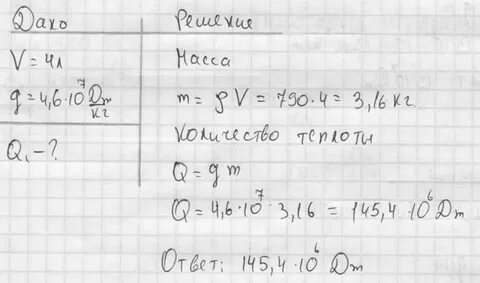 Дано
V = 4л
q = 4,6·10⁷ Дж/кг
Q - ?
Решение
Масса
m = ρV = 790·4 = 3,16 кг
Количество теплоты
Q = qm
Q = 4,6·10⁷·3,16 = 145,4·10⁶ Дж
Ответ: 145,4·10⁶ Дж